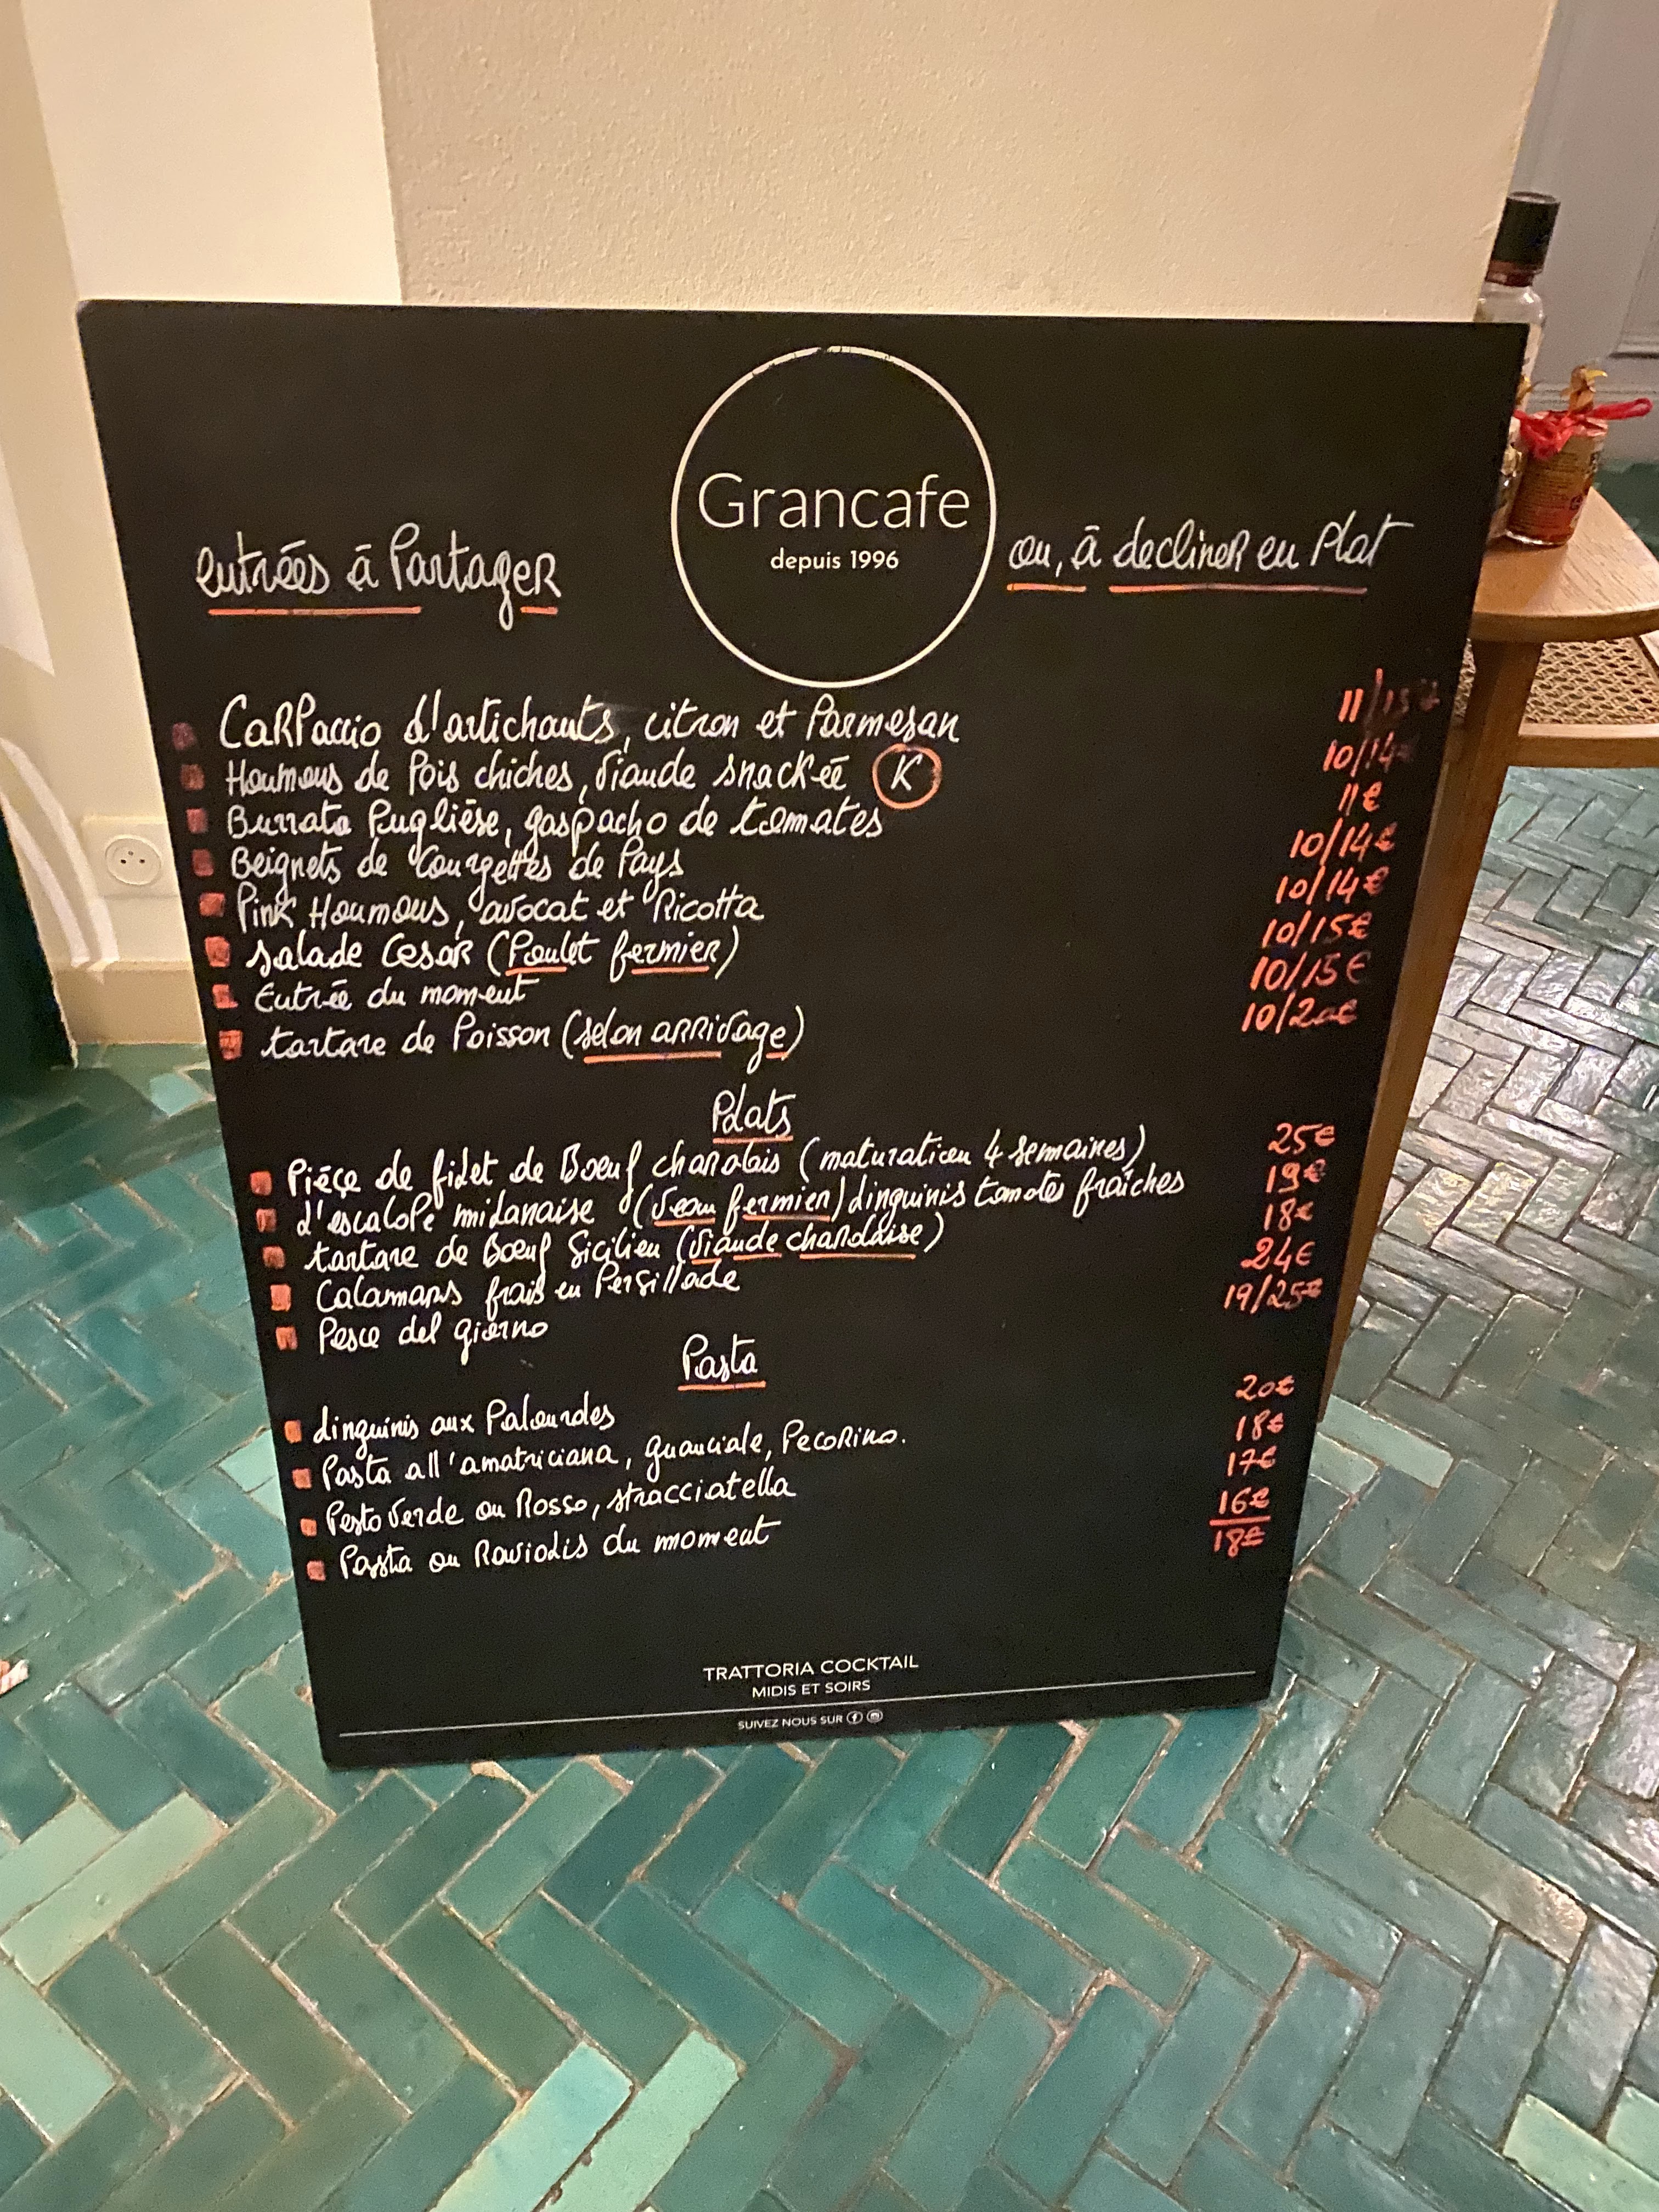 Grancafe
depuis 1996
entrées à Partager
ou, à decliner en Plat
Carpaccio d'artichauts, citron et Parmesan 11/15€
Houmous de Pois chiches, viande snackée K 10/14€
Burrata Pugliése, gaspacho de tomates 11€
Beignets de Courgettes de Pays 10/14€
Pink Houmous, avocat et Ricotta 10/14€
Salade Cesar (Poulet fermier) 10/15€
Entrée du moment 10/15€
tartare de Poisson (selon arrivage) 10/20€
Plats
Piéçe de filet de Boeuf charolais (maturation 4 semaines) 25€
l'escalope milanaise (Veau fermier) linguinis tomates fraîches 19€
tartare de Boeuf Sicilien (Viande charolaise) 18€
Calamars frais en Persillade 24€
Pesce del giorno 19/25€
Pasta
linguinis aux Palourdes 20€
Pasta all'amatriciana, guanciale, Pecorino. 18€
Pesto Verde ou Rosso, stracciatella 17€
Pasta ou Raviolis du moment 16€
18€
TRATTORIA COCKTAIL
MIDIS ET SOIRS
SUIVEZ NOUS SUR